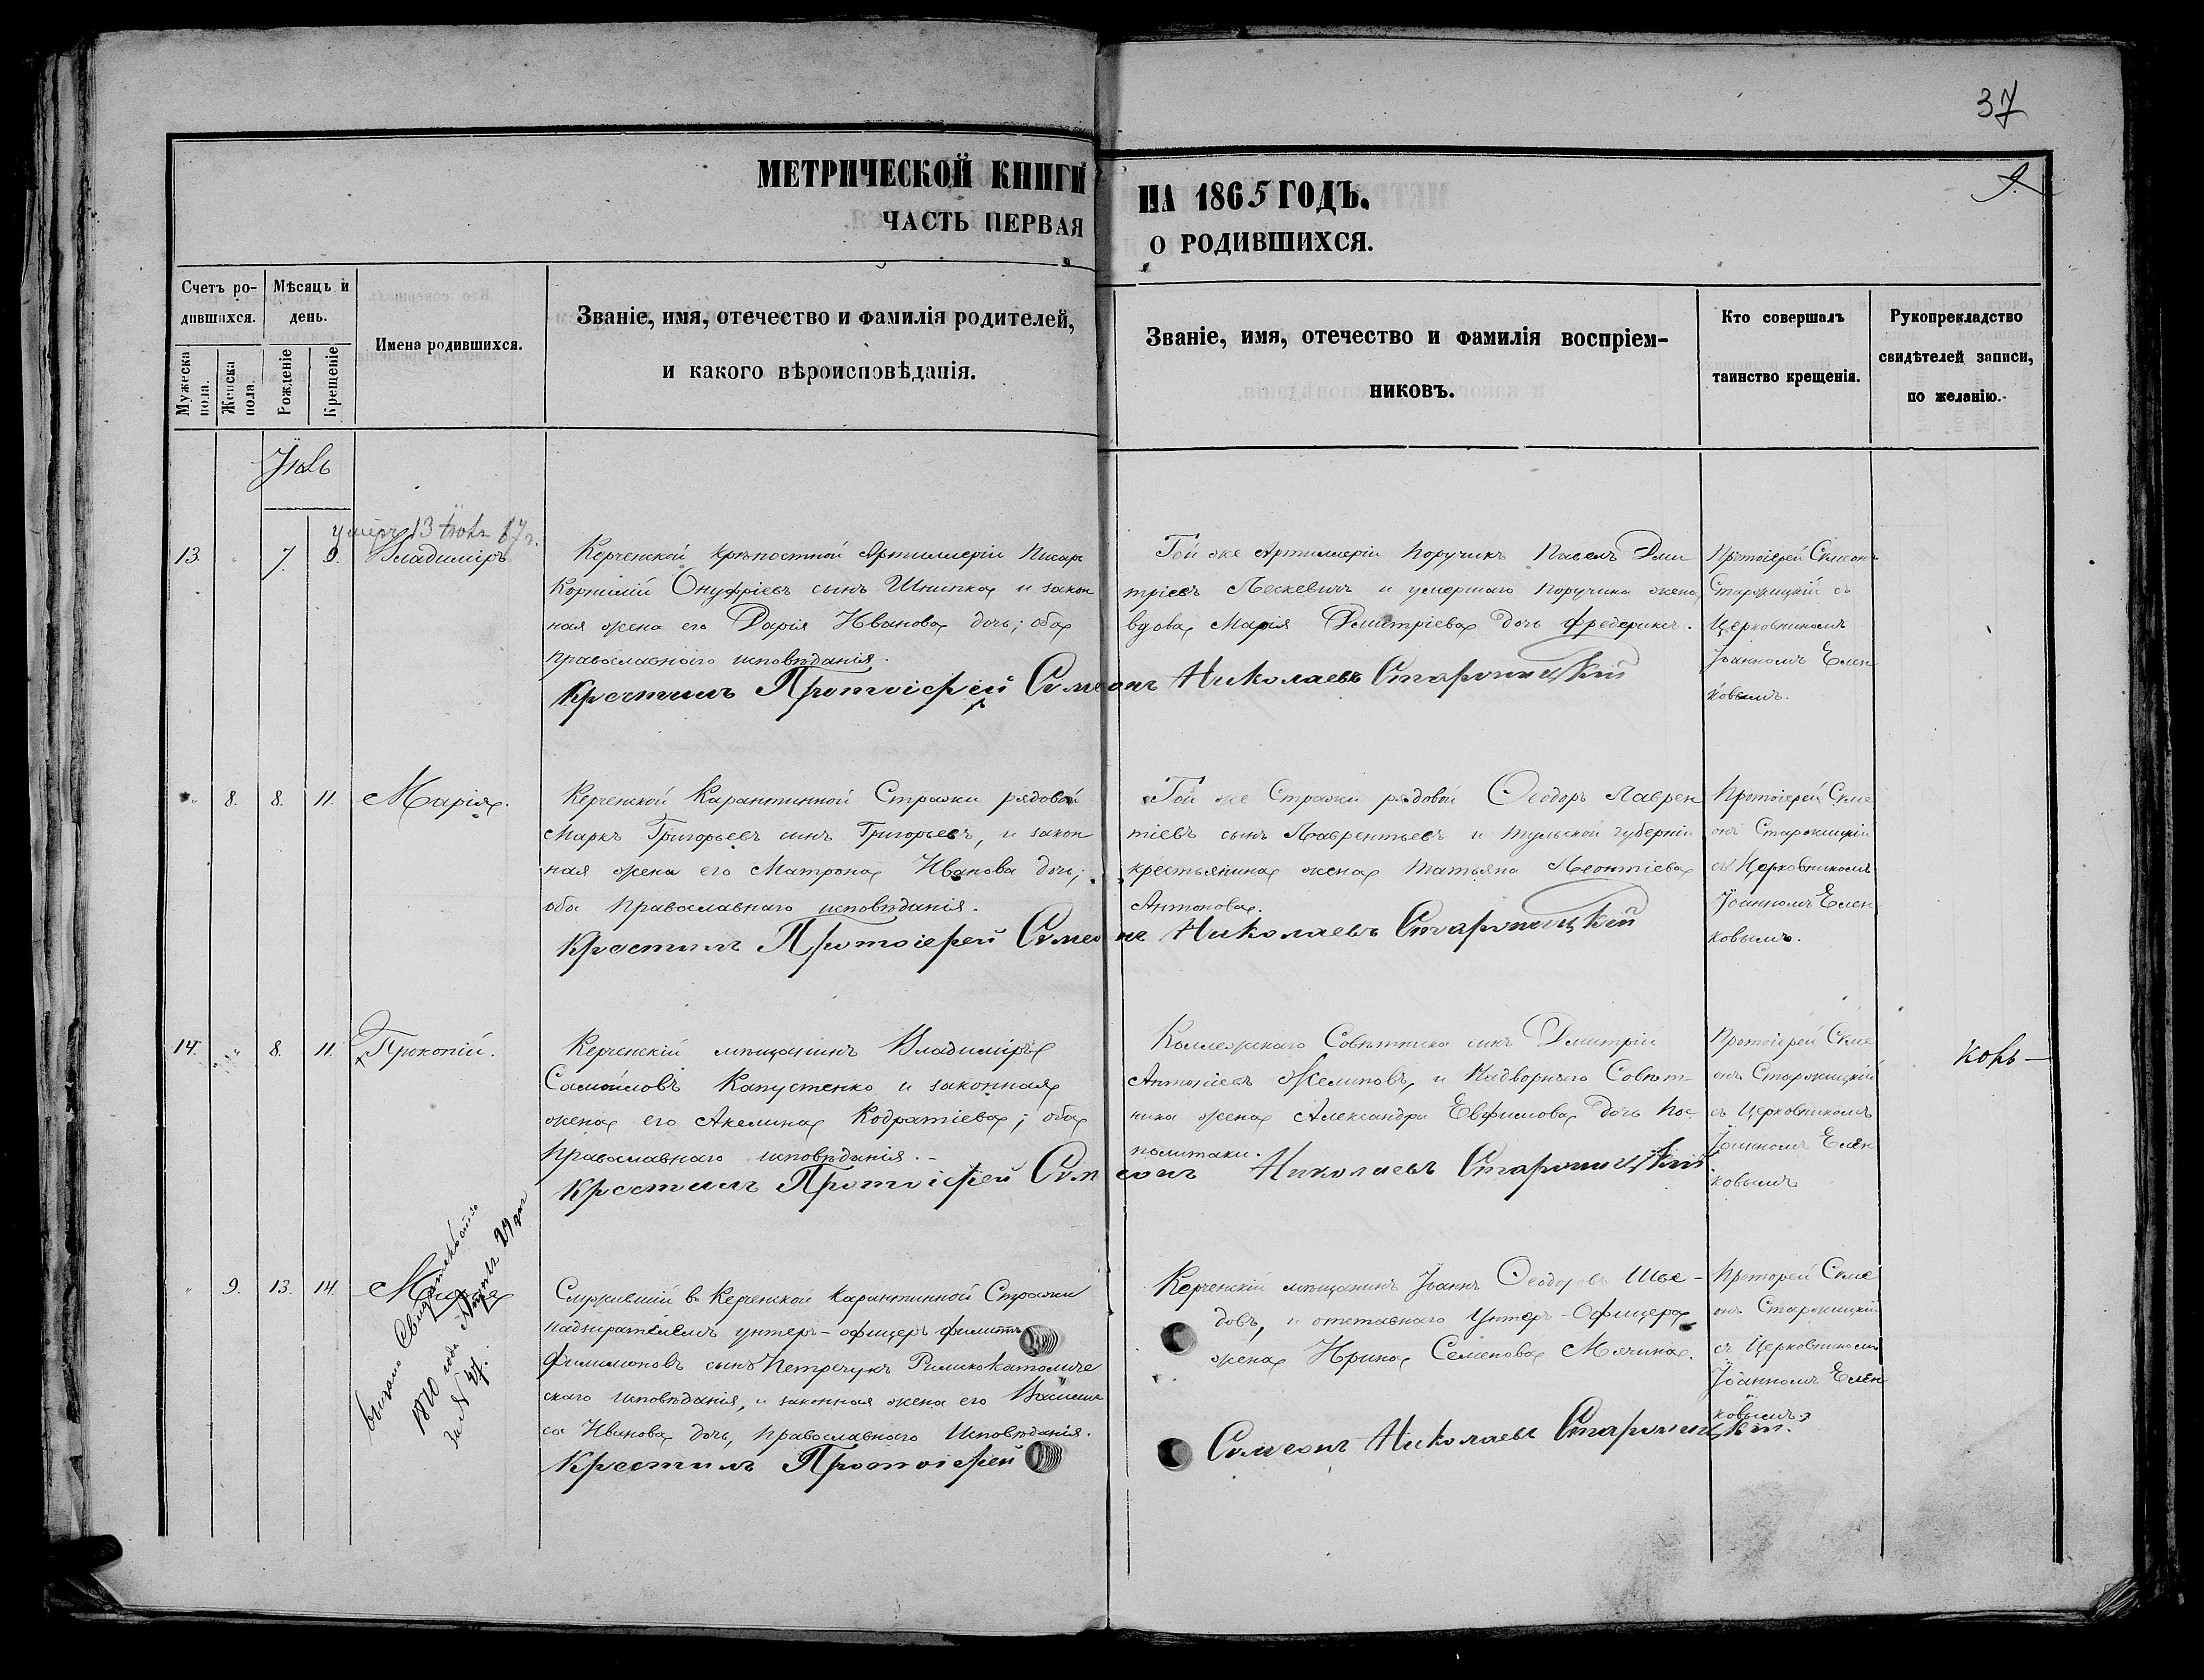 37
МЕТРИЧЕСКОЙ КНИГИ НА 1865 ГОДЪ.
ЧАСТЬ ПЕРВАЯ О РОДИВШИХСЯ.
Счетъ ро-
дившихся.
Мужеска пола.
Женска пола.
Мѣсяцъ и
день.
Рожденіе
Крещеніе
Имена родившихся.
Званіе, имя, отечество и фамилія родителей,
и какого вѣроисповѣданія.
Званіе, имя, отечество и фамилія воспріем-
никовъ.
Кто совершалъ
таинство крещенія.
Рукоприкладство
свидѣтелей записи,
по желанію.
Іюль
умеръ 13
13. " 7. 9. Владиміръ
Керченской крѣпостной Артиллеріи Писарь
Корнилій Онуфріевъ сынъ Шнипка и закон
ная жена его Дарія Иванова дочь; оба
православнаго исповѣданія.
Той же Артиллеріи Поручикъ Павелъ Дми
тріевъ Лескевичъ и умершаго Поручика жена
вдова Марія Дмитріева дочь Фредерикс.
Протоіерей Симеонъ
Старжицкій съ
Церковникомъ
Іоанномъ Елен
ковымъ.
Крестилъ Протоіерей Симеонъ Николаевъ Старжицкій
" 8. 8. 11. Марія.
Керченской Карантинной Стражи рядовой
Маркъ Григорьевъ сынъ Григорьевъ, и закон
ная жена его Матрона Иванова дочь;
оба Православнаго исповѣданія.
Той же Стражи рядовой Ѳеодоръ Лаврен
тіевъ сынъ Лаврентьевъ и Тульской губерніи
крестьянина жена Татьяна Леонтіева
Антонова.
Протоіерей Симе
онъ Старжицкій
съ Церковникомъ
Іоанномъ Елен
ковымъ.
Крестилъ Протоіерей Симеонъ Николаевъ Старжицкій
14. " 8. 11. Прокопій.
Керченскій мѣщанинъ Владиміръ
Самойловъ Капустенко и законная
жена его Акелина Кодратіева; оба
Православнаго исповѣданія.-
Коллежскаго Совѣтника сынъ Дмитрій
Антоніевъ Желиповъ, и Надворнаго Совѣт-
ника жена Александра Евфимова дочь По-
политаки.
Протоіерей Симе
онъ Старжицкій
съ Церковникомъ
Іоанномъ Елен
ковымъ
Крестилъ Протоіерей Симеонъ Николаевъ Старжицкій
" 9. 13. 14.
Свидѣтельство
1870 года Апрѣля 29 дня
за № 47.
Служившій въ Керченской Карантинной Стражи
надзирателемъ унтеръ-офицеръ Филиппъ
Филимоновъ сынъ Петречукъ Римскокатоличе
скаго исповѣданія, и законная жена его Васили
са Иванова дочь, православнаго Исповѣданія.
Керченскій мѣщанинъ Іоаннъ Ѳеодоровъ Шве-
довъ, и отставнаго Унтеръ-Офицера
жена Ирина Семенова Мячина.
Протоіерей Симе
онъ Старжицкій
съ Церковникомъ
Іоанномъ Елен
ковымъ.
Крестилъ Протоіерей Симеонъ Николаевъ Старжицкій.